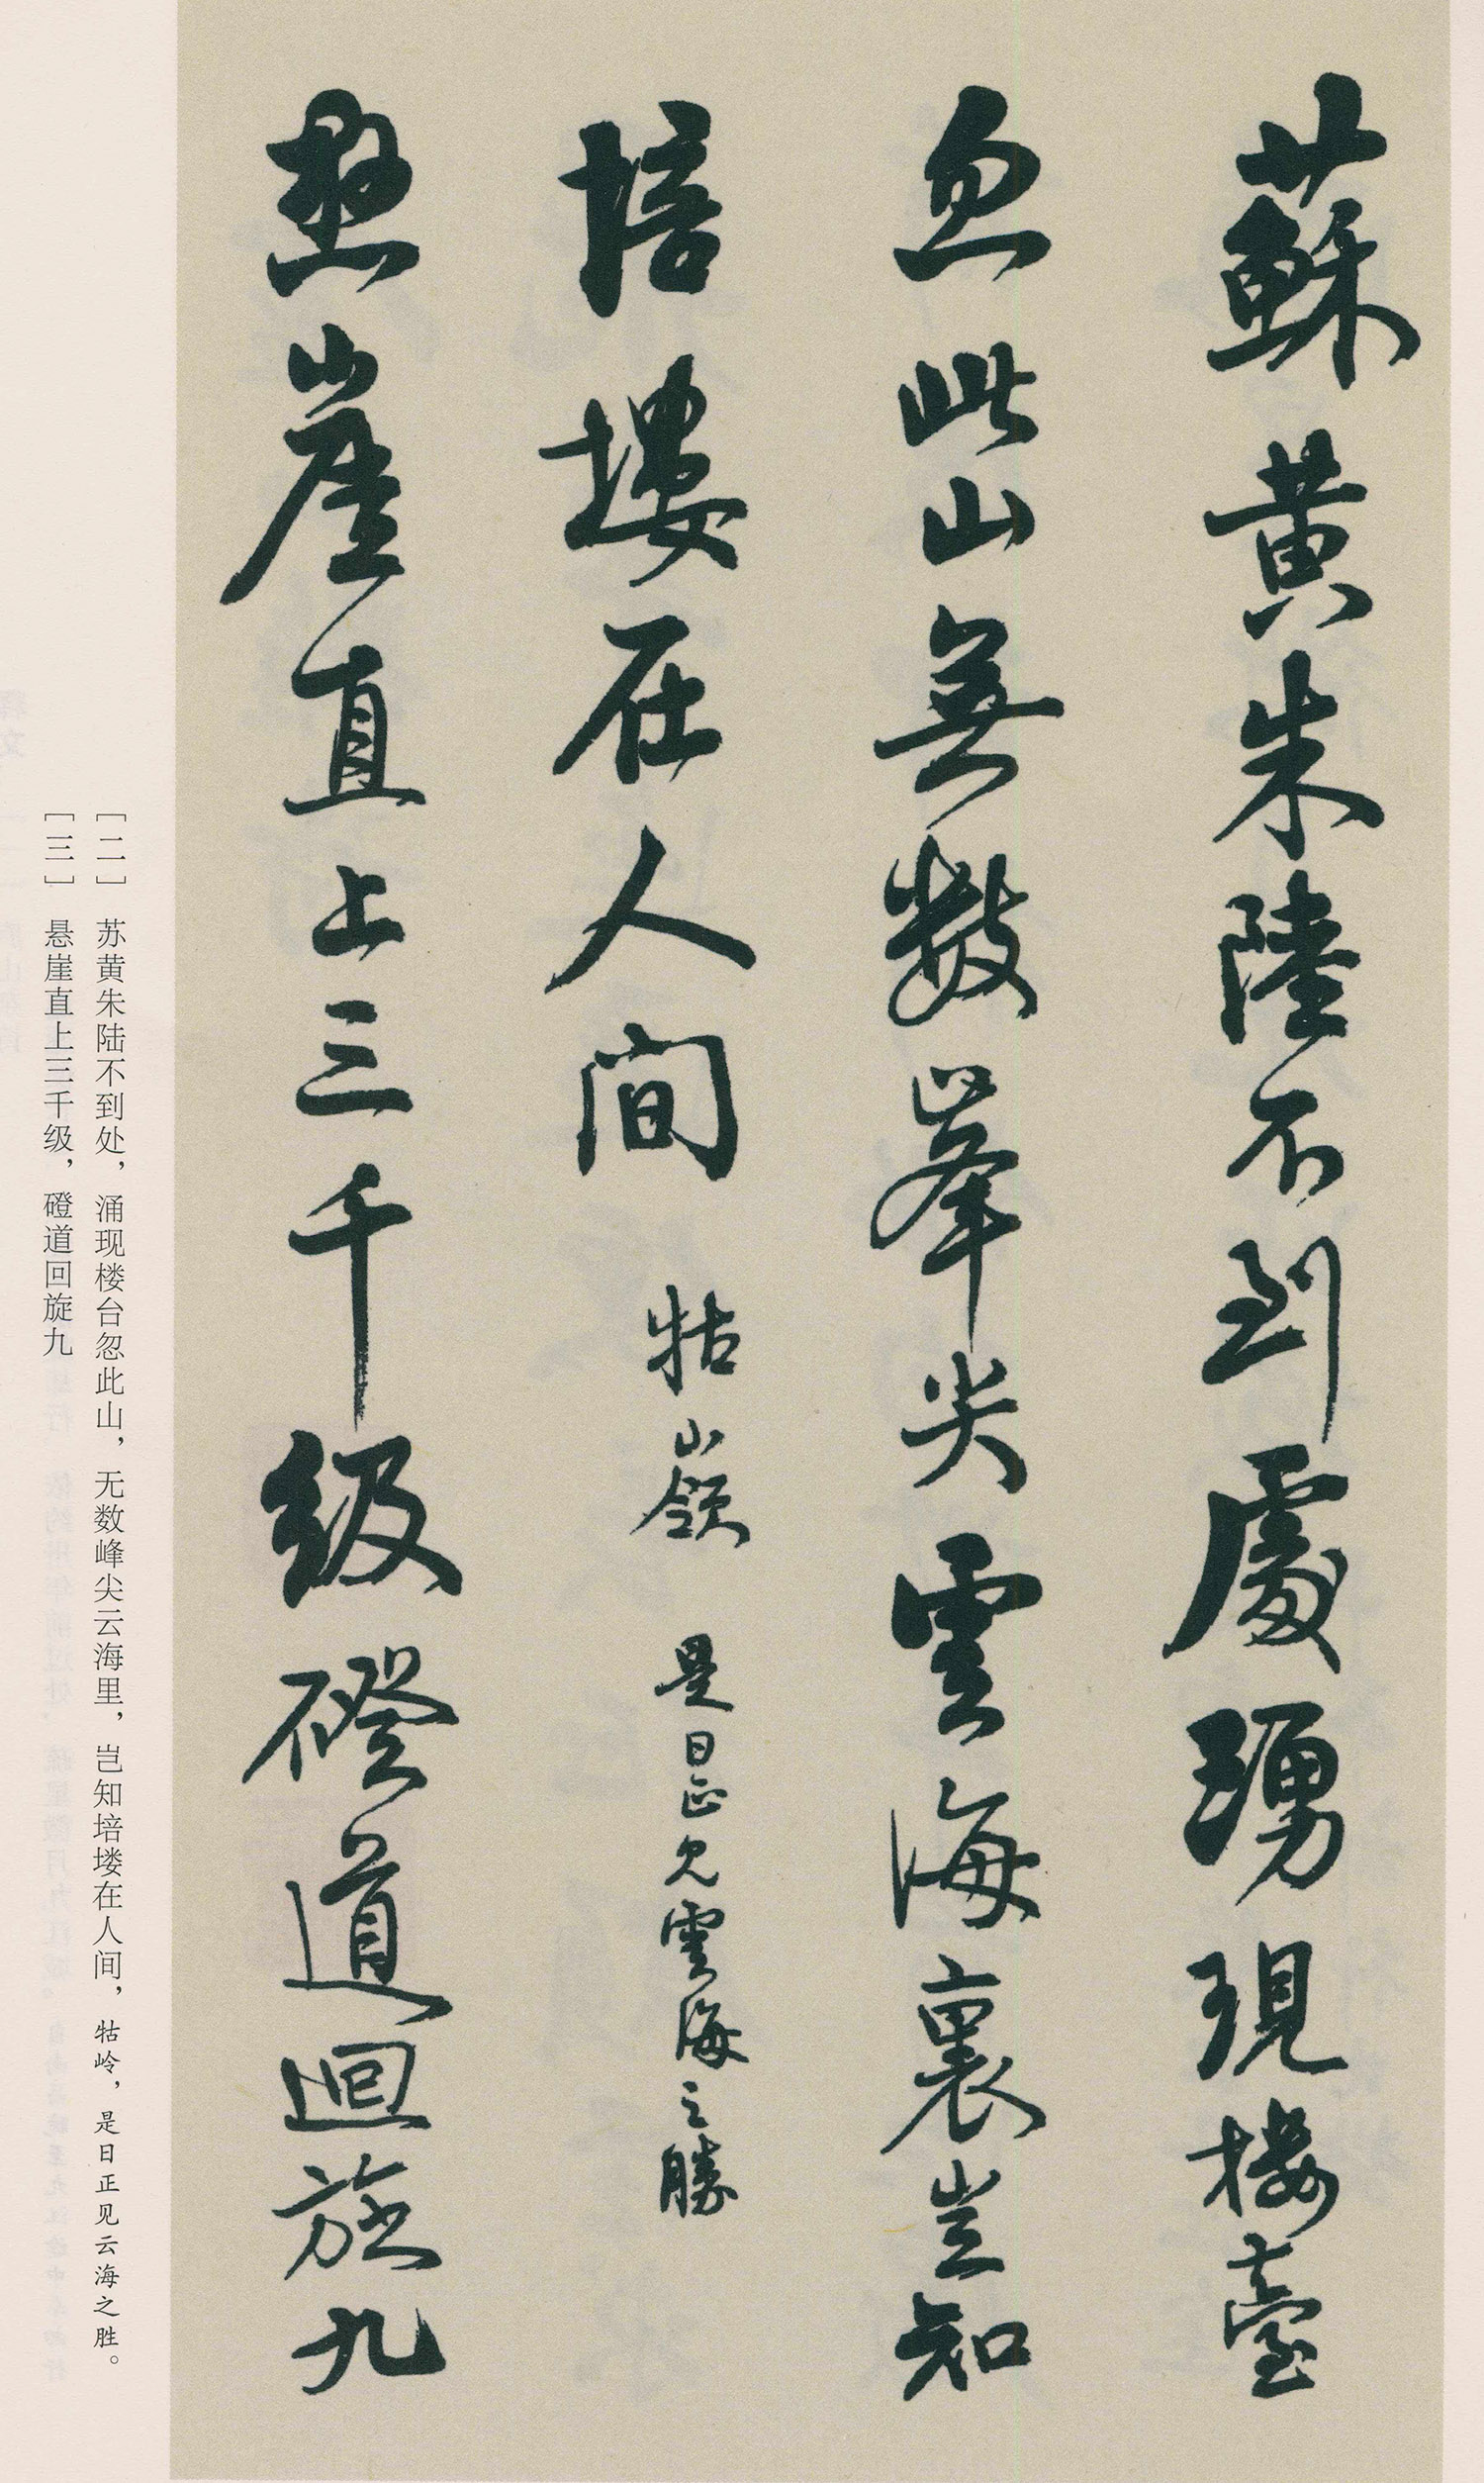 蘇黄朱陸不到處湧現楼臺
忽此山無數峯尖雲海裏豈知
培塿在人间 牯嶺 是日正見雲海之勝
懸崖直上三千级磴道迴旋九
［二］ 苏黄朱陆不到处，涌现楼台忽此山，无数峰尖云海里，岂知培塿在人间，牯岭，是日正见云海之胜。
［三］ 悬崖直上三千级，磴道回旋九